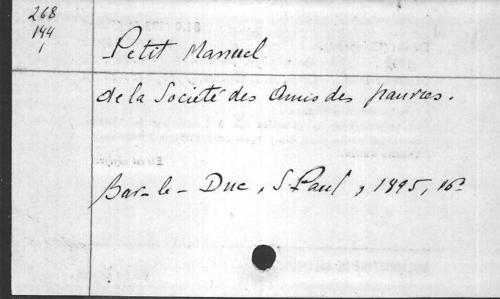 268
144
1
Petit Manuel
de la Société des Amis des pauvres.
Bar-le-Duc, S. Paul, 1895, 16º